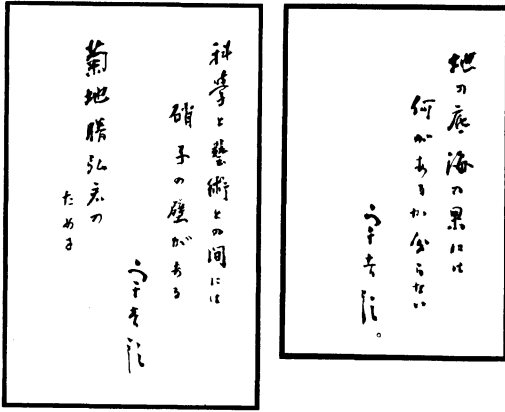 地の底海の果には
何があるか分らない
宇吉郎。
科學と藝術との間には
硝子の壁がある
菊地勝弘君の
ために
宇吉郎